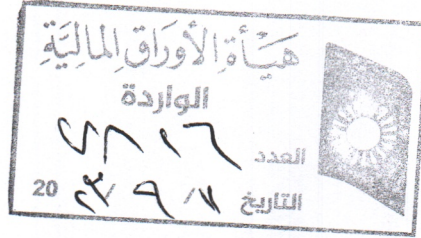 هيأة الأوراق المالية
الواردة
العدد ٧٨١٦
التاريخ ٧ / ٩ / 20